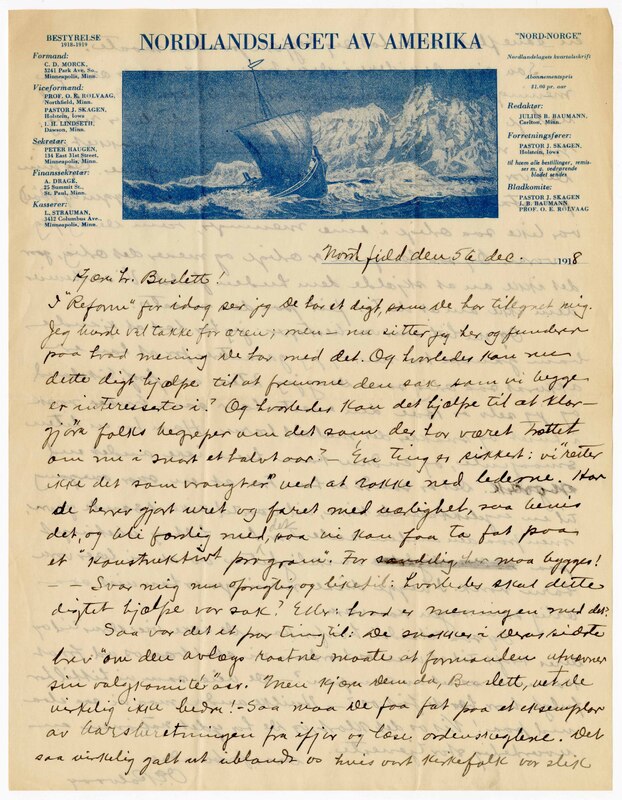 BESTYRELSE
1918-1919
Formand:
C. D. MORCK,
3241 Park Ave. So.,
Minneapolis, Minn.
Viceformand:
PROF. O. E. ROLVAAG,
Northfield, Minn.
PASTOR J. SKAGEN,
Holstein, Iowa
I. H. LINDSETH,
Dawson, Minn.
Sekretær:
PETER HAUGEN,
134 East 31st Street,
Minneapolis, Minn.
Finanssekretær:
A. DRAGE,
25 Summit St.,
St. Paul, Minn.
Kasserer:
L. STRAUMAN,
3412 Columbus Ave.,
Minneapolis, Minn.
NORDLANDSLAGET AV AMERIKA
"NORD-NORGE"
Nordlandslagets kvartalskrift
Abonnementspris
$1.00 pr. aar
Redaktør:
JULIUS B. BAUMANN,
Carlton, Minn.
Forretningsfører:
PASTOR J. SKAGEN,
Holstein, Iowa
til hvem alle bestillinger, remis-
ser m. v. vedrørende
bladet sendes
Bladkomite:
PASTOR J. SKAGEN
J. B. BAUMANN
PROF. O. E. ROLVAAG
Northfield den 5te dec. 1918
Kjære hr. Buslett!
I "Reform" for idag ser jeg De har et digt, som De har tilegnet mig.
Jeg burde vel takke for æren; men – nu sitter jeg her og funderer
paa hvad mening De har med det. Og hvorledes kan nu
dette digt hjælpe til at fremme den sak som vi begge
er interesserte i? Og hvorledes kan det hjælpe til at klar-
gjøre folks begreper om det som der har været trættet
om nu i snart et halvt aar? – En ting er sikkert: vi "retter
ikke det som vrangt er" ved at rakke ned lederne. Har
de herrer gjort uret og faret med uærlighet, saa bevis
det, og bli færdig med det, saa vi kan faa ta fat paa
et "konstruktivt program". For maa bygges!
– – Svar mig nu oprigtig og liketil: hvorledes skal dette
digtet hjælpe vor sak? Eller: hvad er meningen med det?
Saa var det et par ting til: De snakker i Deres sidste
brev "om den avlegs raatne maate at formanden utnævner
sin valgkomité" osv. Men kjære Dem da, Buslett, vet De
virkelig ikke bedre! – Saa maa De faa fat paa et eksemplar
av aarsberetningen fra ifjor og læse ordensreglene. Det
saa virkelig galt ut iblandt os hvis vort kirkefolk var slik